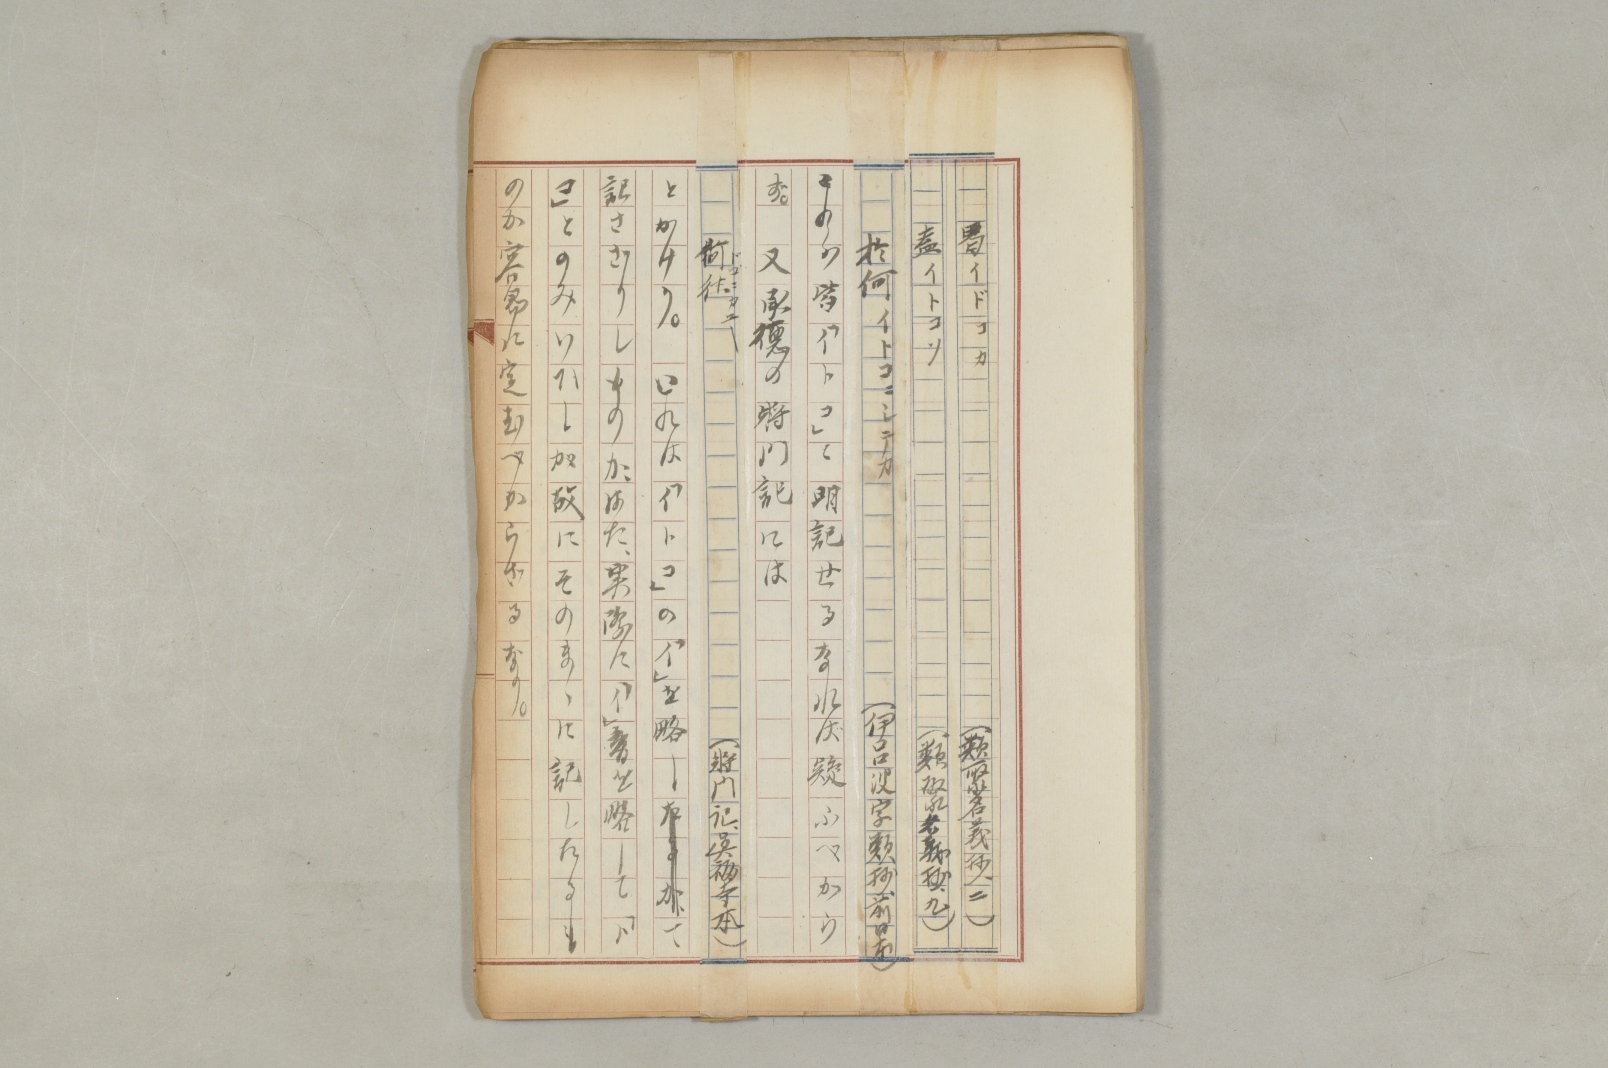 曷イドコカ (類聚名義抄、二)
盍イトコソ (類聚名義抄、九)
於何イトコニシテカ (伊呂波字類抄、前田本)
の皆「イトコ」と明記せるなれば疑ふべから
ず。又承徳の将門記には
(将門記、真福寺本)
とかけり。これは「イトコ」の「イ」を略して
記さざりしものか、はた、実際に「イ」音を略して「ド
コ」とのみいひしが故にそのまゝに記したるも
のか容易に定むべからざるなり。